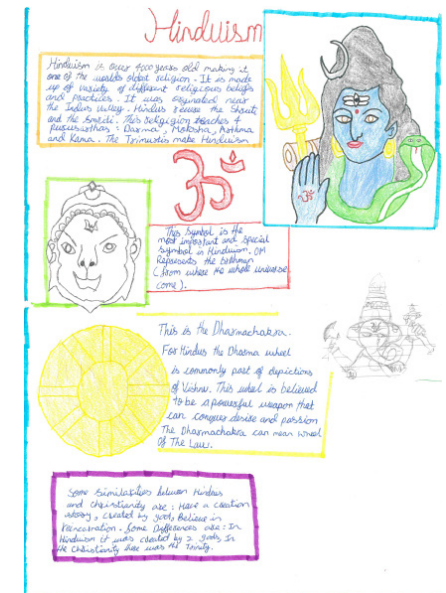 Hinduism
Hinduism is over 4000 years old making it
one of the worlds oldest religion. It is made
up of variety of different religious beliefs
and practices. It was originated near
the Indus Valley. Hindus revere the Shruti
and the Smriti. This religion teaches 4
purusarthas: Darma, Moksha, Artha
and Kama. The Trimurtis make Hinduism
ॐ
This symbol is the
most important and special
symbol in Hinduism. OM
Represents the Brahman
(from where the whole universe
come).
ॐ
This is the Dharmachakra.
For Hindus the Dharma wheel
is commonly part of depictions
of Vishnu. This wheel is believed
to be a powerful weapon that
can conquer desire and passion
The Dharmachakra can mean Wheel
Of The Law.
Some similarities between Hindus
and christianity are: Have a creation
story, created by god, Believe in
reincarnation. Some Differences are: In
Hinduism it was created by 2 gods, In
the Christianity there was the Trinity.